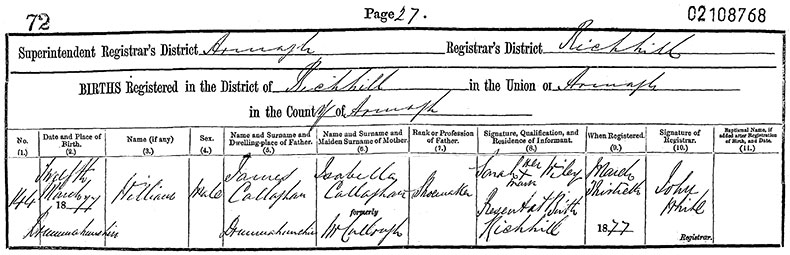 72
Page 27.
02108768
Superintendent Registrar's District Armagh Registrar's District Richhill
BIRTHS Registered in the District of Richhill in the Union of Armagh
in the County of Armagh
No. (1.) Date and Place of Birth. (2.) Name (if any) (3.) Sex. (4.) Name and Surname and Dwelling-place of Father. (5.) Name and Surname and Maiden Surname of Mother. (6.) Rank or Profession of Father. (7.) Signature, Qualification, and Residence of Informant. (8.) When Registered. (9.) Signature of Registrar. (10.) Baptismal Name, if added after Registration of Birth, and Date. (11.)
144
Twelfth
March
1877
William
Male
James
Callaghan
Isabella
Callaghan
formerly
McCullough
Shoemaker
Sarah her Wiley
x
mark
Present at Birth
Richhill
March
Thirtieth
1877
John
White
Registrar.